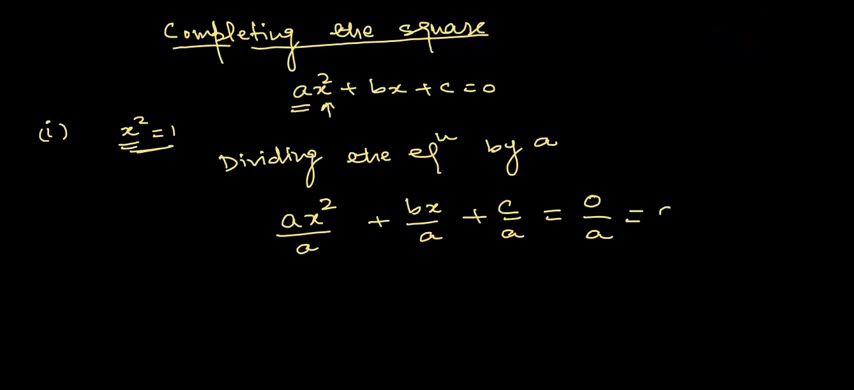 Completing the square
ax² + bx + c = 0
(i) x² = 1
Dividing the eqⁿ by a
ax²/a + bx/a + c/a = 0/a =